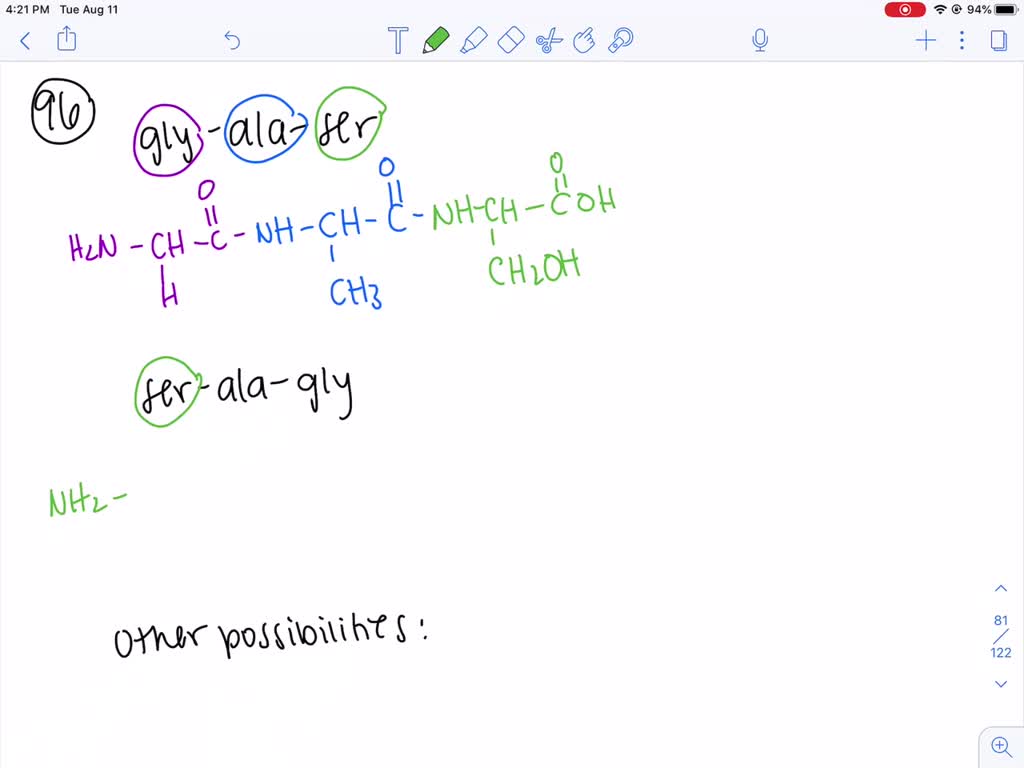 4:21 PM Tue Aug 11 94%
T
96
gly-ala-ser
O O O
H2N-CH-C-NH-CH-C-NH-CH-COH
H CH3 CH2OH
ser-ala-gly
NH2-
81
/
122
other possibilities: